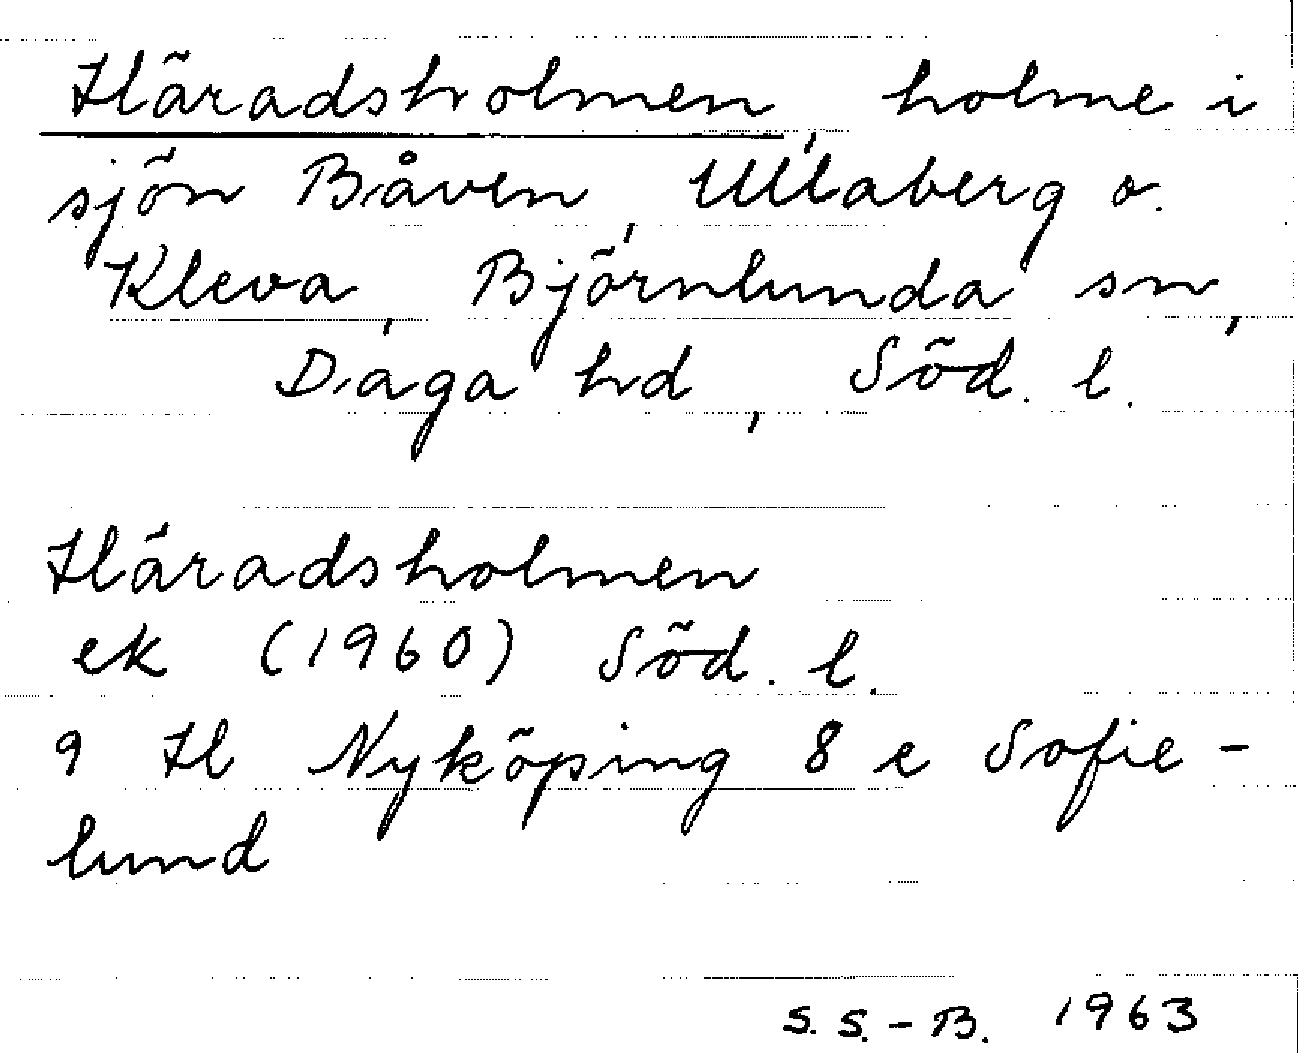 Häradsholmen, holme i
sjön Båven, Ullaberg o.
Kleva, Björnlunda sn,
Daga hd, Söd. l.
Häradsholmen
ek (1960) Söd. l.
9 H Nyköping 8 e Sofie-
lund
S. S.-B. 1963